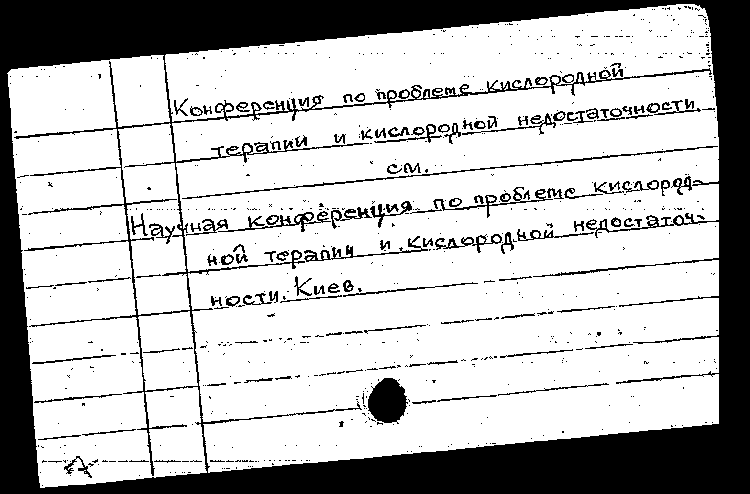 Конференция по проблеме кислородной
терапии и кислородной недостаточности.
см.
Научная конференция по проблеме кислород-
ной терапии и кислородной недостаточ-
ности. Киев.
А